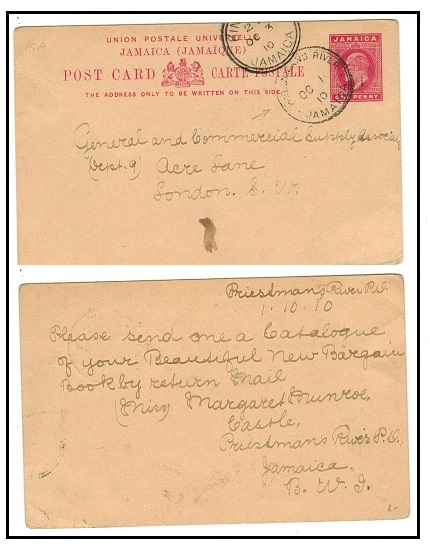 UNION POSTALE UNIVERSELLE
JAMAICA (JAMAÏQUE)
POST CARD CARTE POSTALE
THE ADDRESS ONLY TO BE WRITTEN ON THIS SIDE.
JAMAICA
PENNY
OC 3
10
JAMAICA
PRIESTMANS RIVER
OC 1
10
JAMAICA
General and Commercial Supply Society
(Dept. 9) Acre Lane
London. S. W.
Priestman's River P.O.
1.10.10
Please send one a Catalogue
of your Beautiful New Bargain
Book by return Mail
(Miss) Margaret Munroe,
Castle,
Priestmans River P.O.,
Jamaica,
B. W. I.